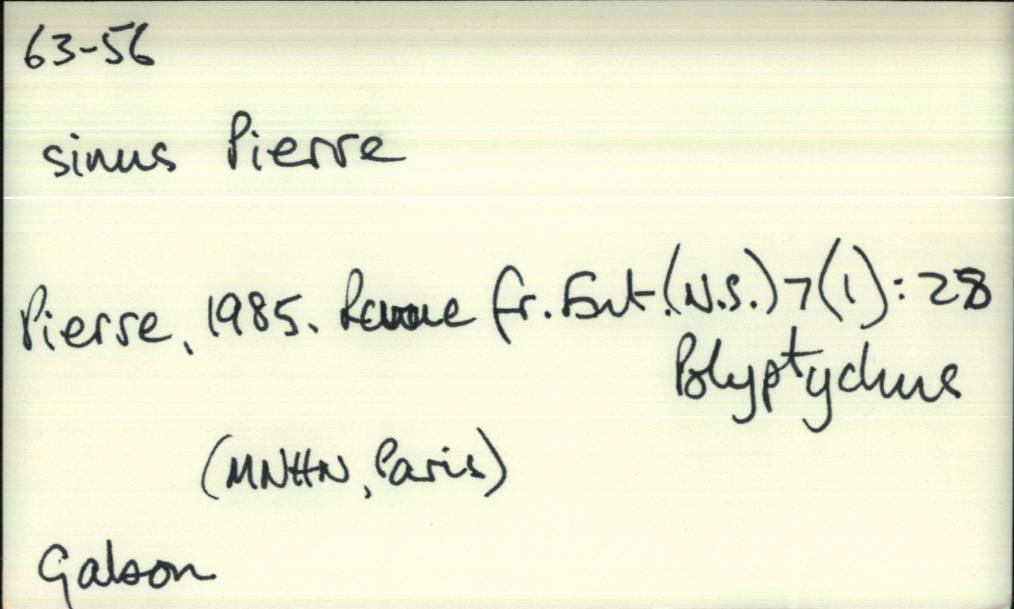 63-56
sinus Pierre
Pierre, 1985. Revue fr. Ent. (N.S.) 7(1): 28
Polyptychus
(MNHN, Paris)
Gabon